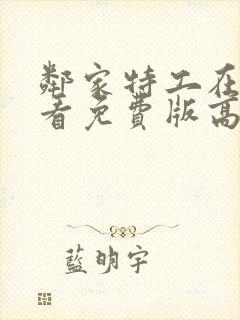 鄰家特工在
看免費版高
藍明宇